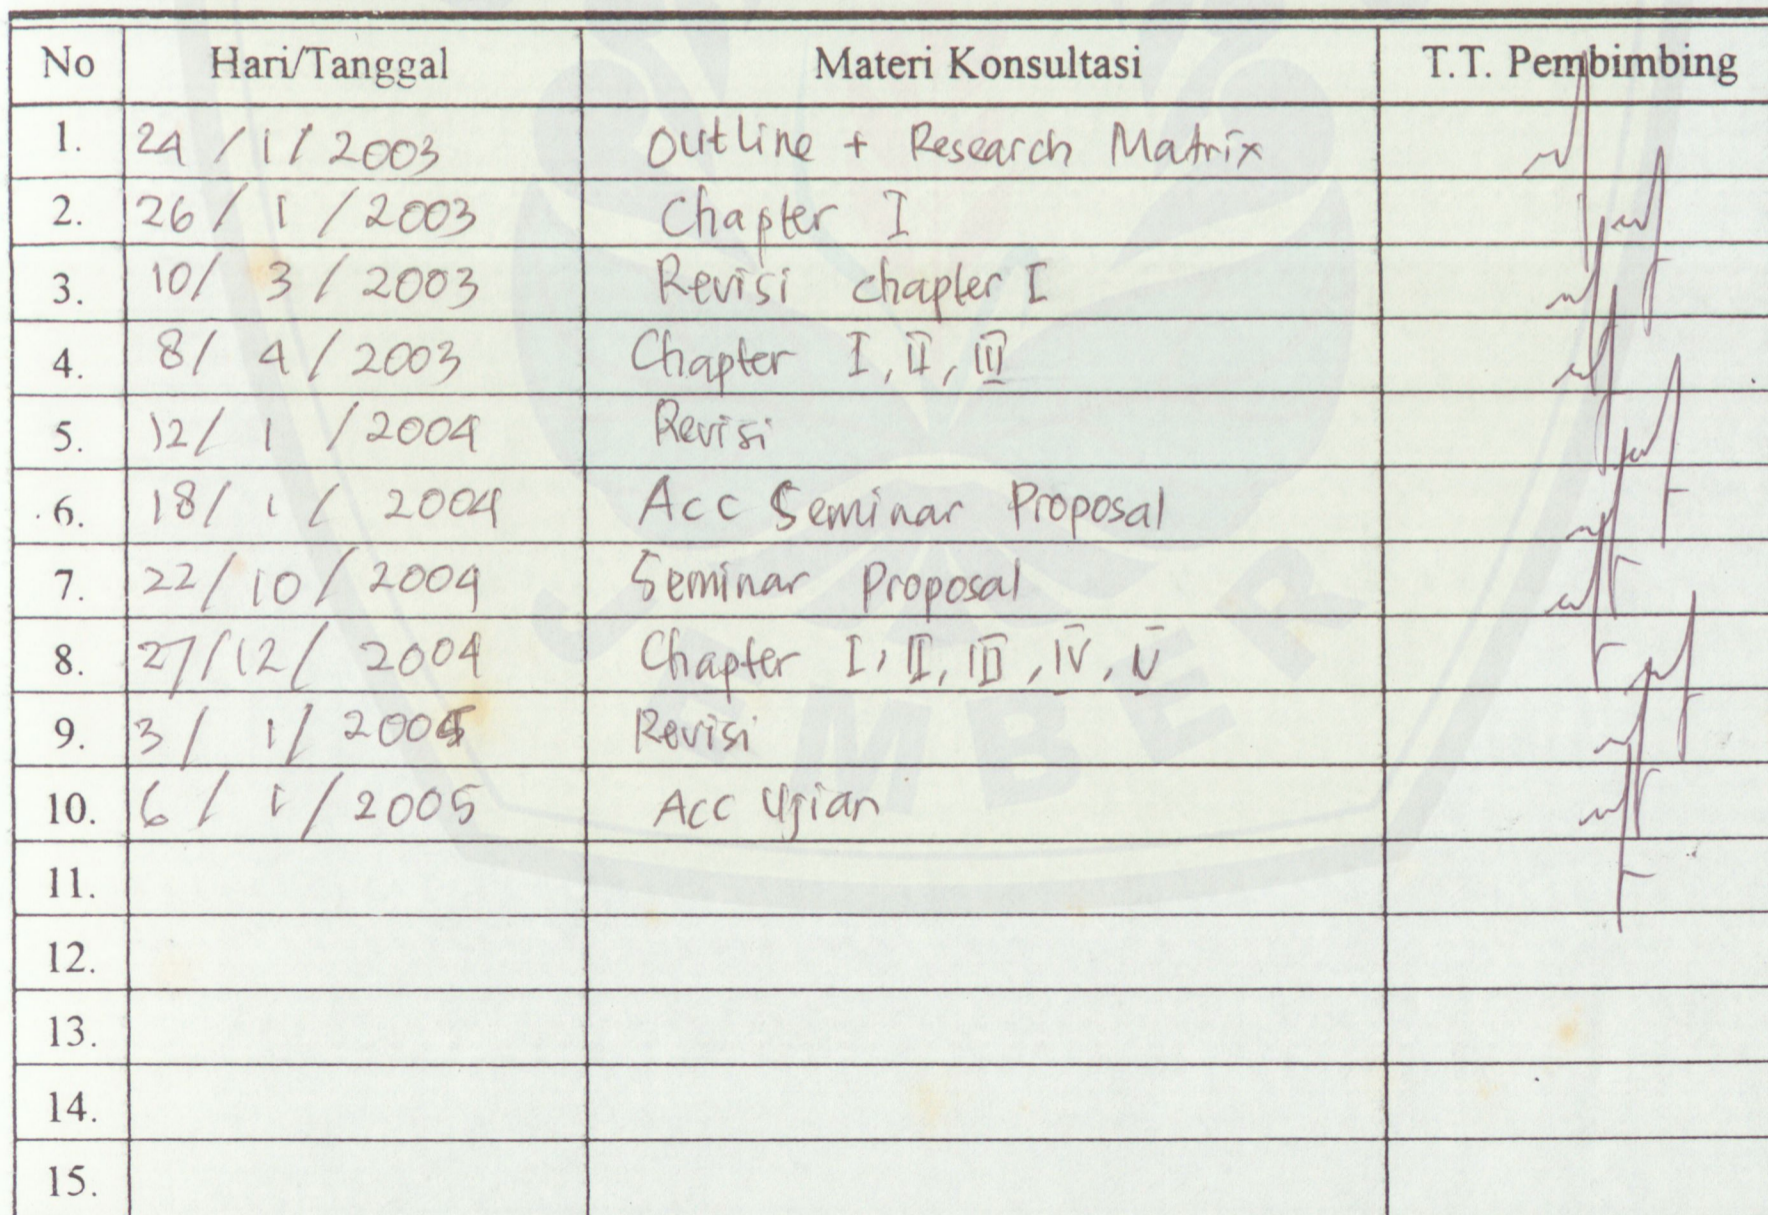 No Hari/Tanggal Materi Konsultasi T.T. Pembimbing
1. 24 / 1 / 2003 Outline + Research Matrix
2. 26 / 1 / 2003 Chapter I
3. 10 / 3 / 2003 Revisi chapter I
4. 8 / 4 / 2003 Chapter I, II, III
5. 12 / 1 / 2004 Revisi
6. 18 / 1 / 2004 Acc Seminar Proposal
7. 22 / 10 / 2004 Seminar Proposal
8. 27 / 12 / 2004 Chapter I, II, III, IV, V
9. 3 / 1 / 2005 Revisi
10. 6 / 1 / 2005 Acc Ujian
11.
12.
13.
14.
15.
JEMBER